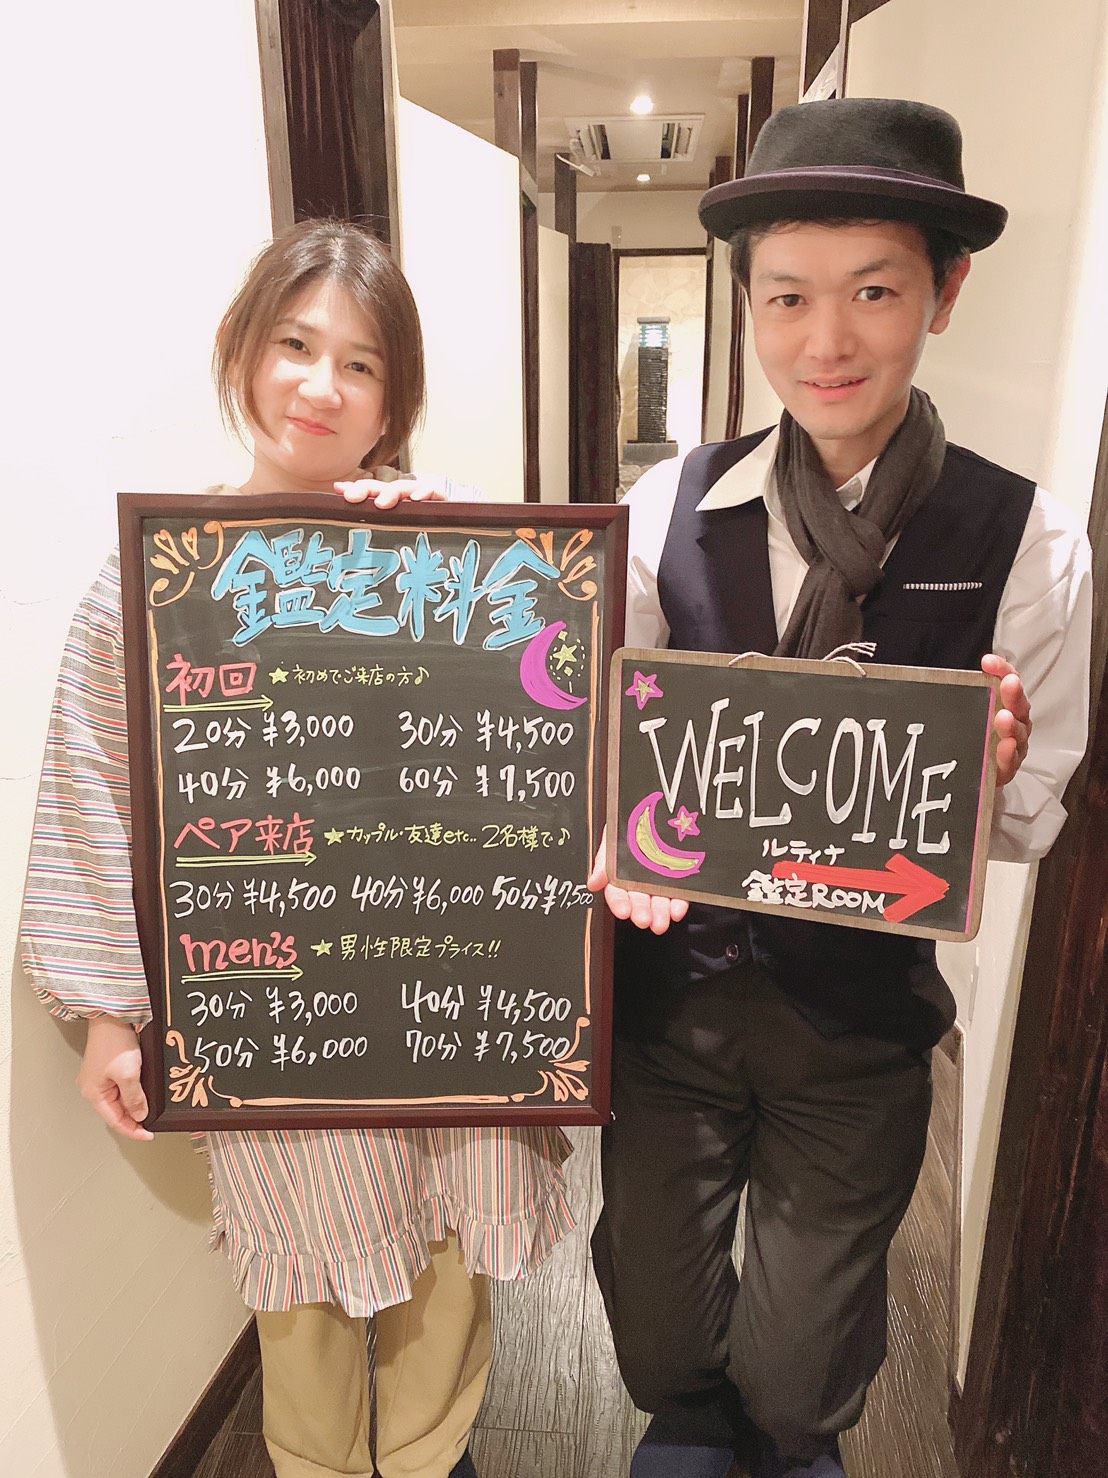 鑑定料金
初回 ★初めてご来店の方♪
20分 ¥3,000 30分 ¥4,500
40分 ¥6,000 60分 ¥7,500
ペア来店 ★カップル・友達etc.. 2名様で♪
30分 ¥4,500 40分 ¥6,000 50分 ¥7,500
men's ★男性限定プライス!!
30分 ¥3,000 40分 ¥4,500
50分 ¥6,000 70分 ¥7,500
WELCOME
ルティナ
鑑定ROOM